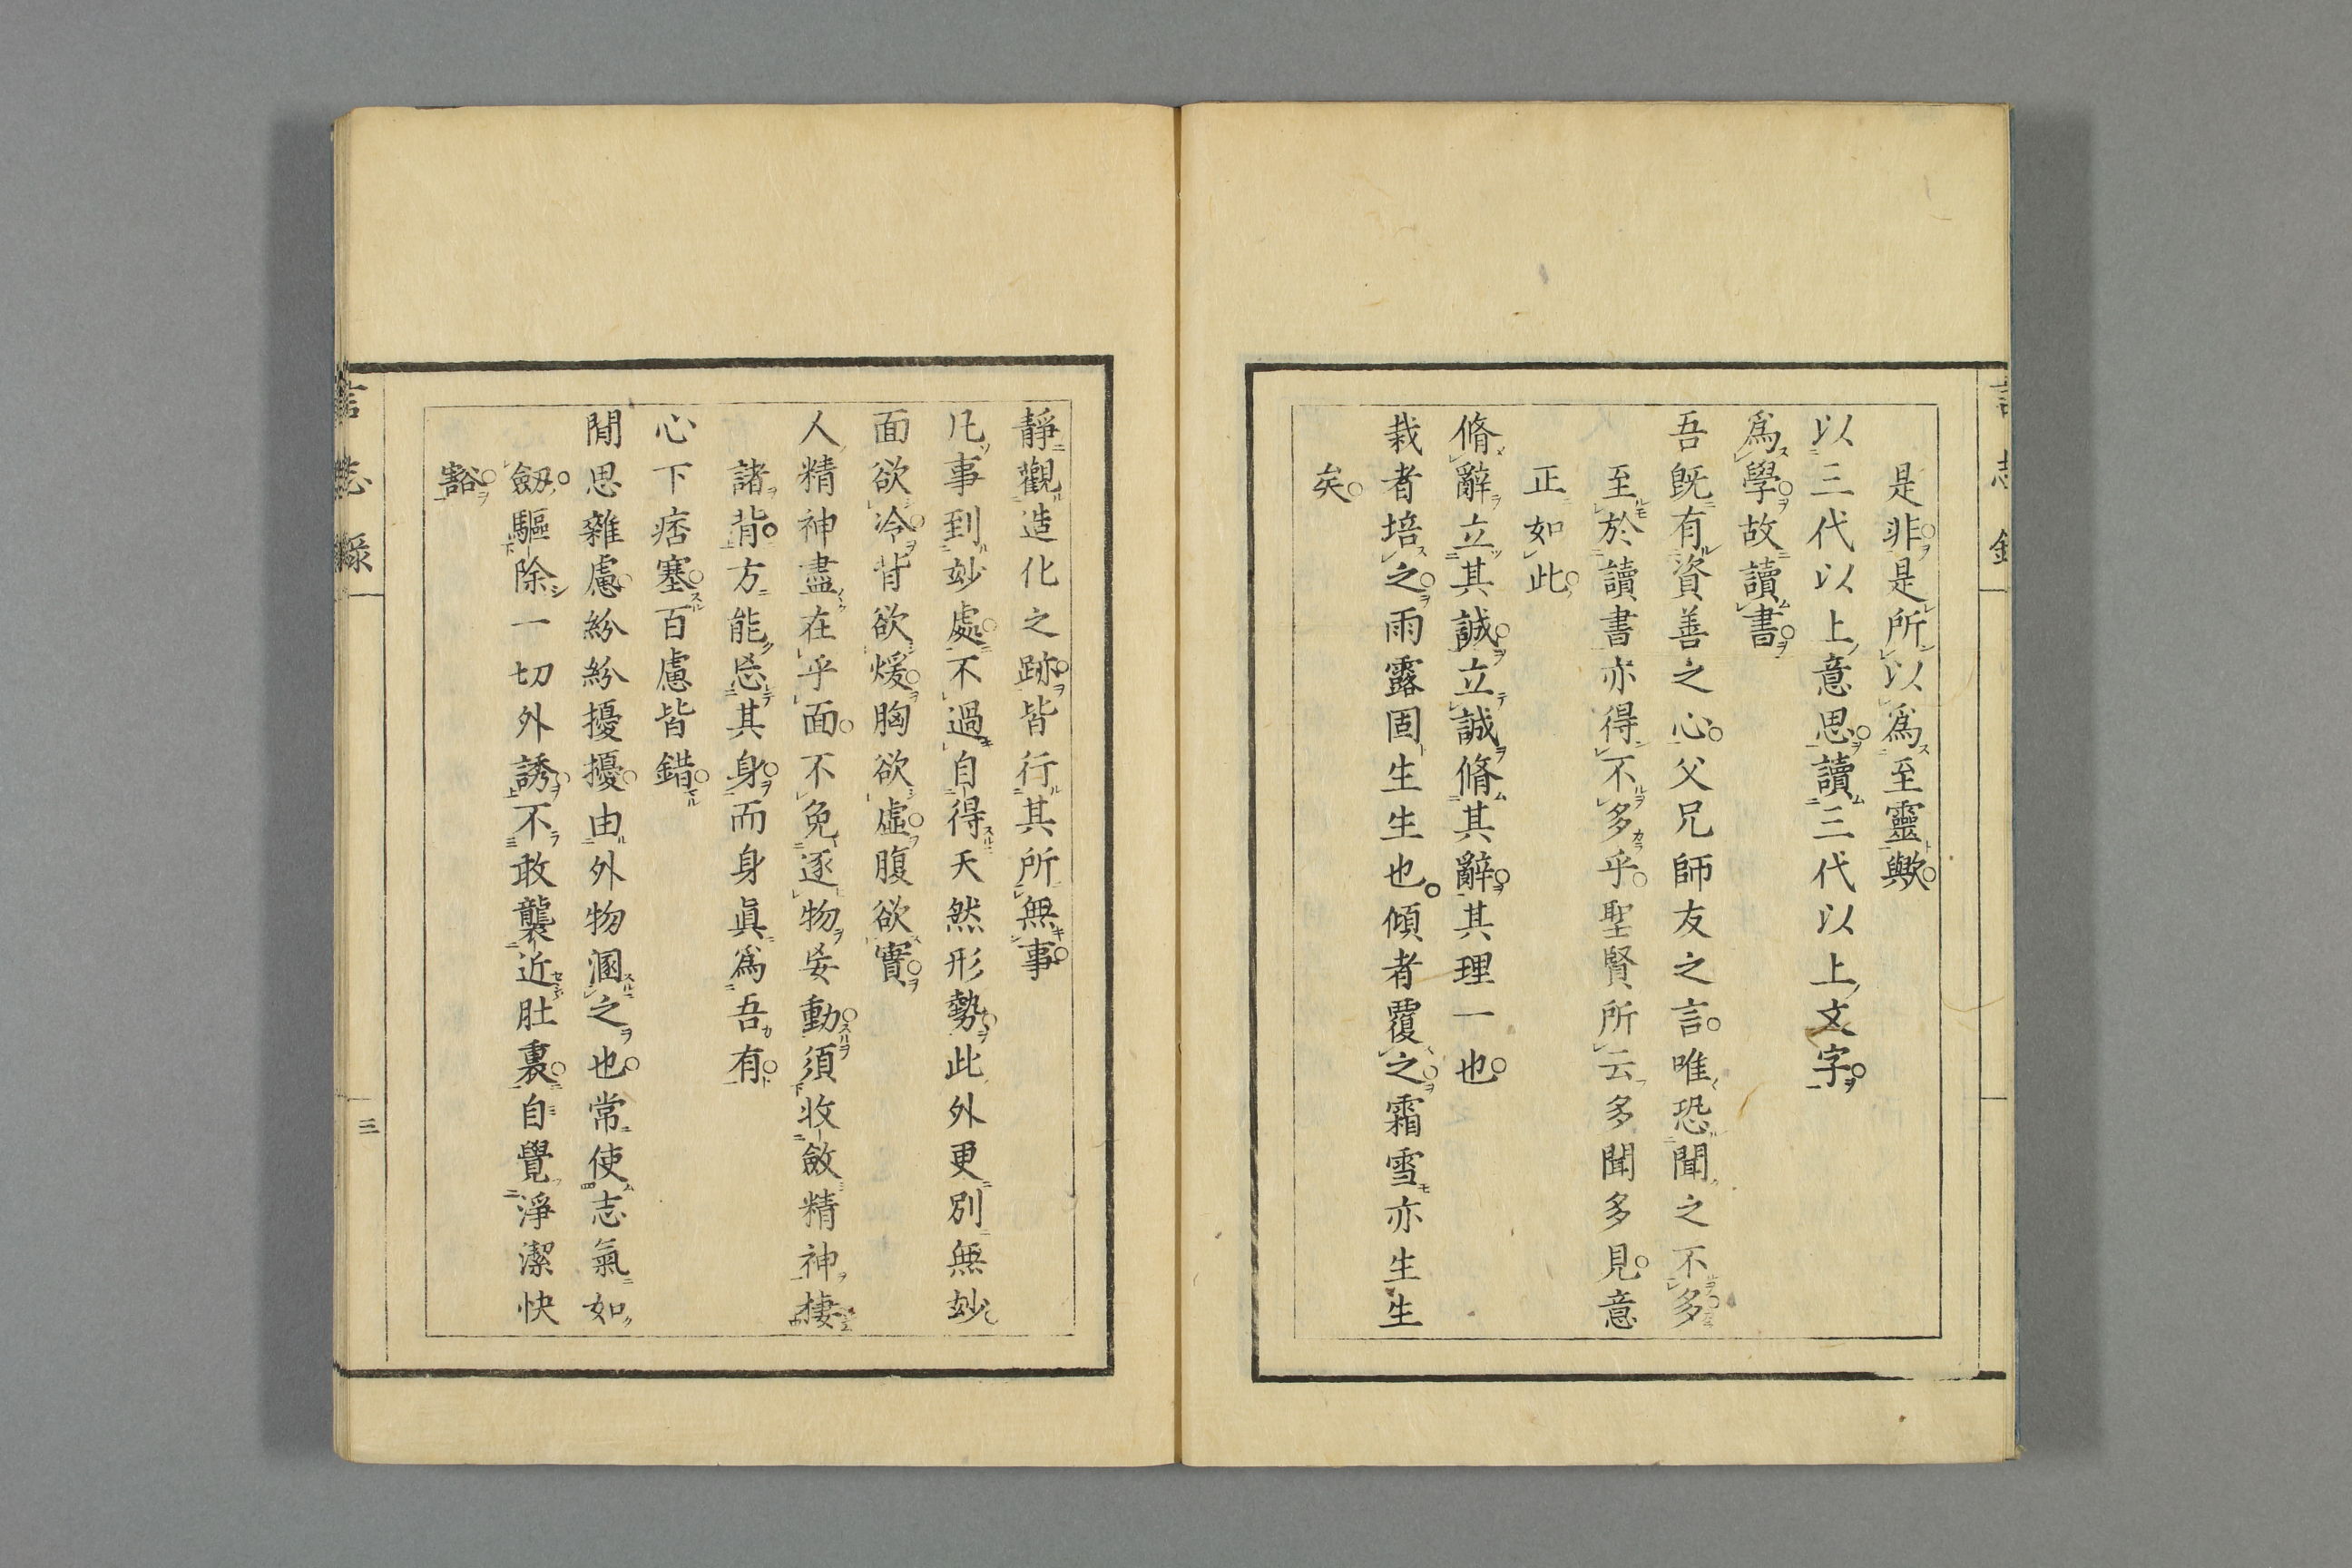 是非是所以爲至靈歟
以三代以上意思讀三代以上文字
爲學故讀書
吾既有資善之心父兄師友之言唯恐聞之不多
至於讀書亦得不多乎聖賢所云多聞多見意
正如此
脩辭立其誠立誠脩其辭其理一也
栽者培之雨露固生生也傾者覆之霜雪亦生生
矣
靜觀造化之跡皆行其所無事
凡事到妙處不過自得天然形勢此外更別無妙
面欲冷背欲煖胸欲虛腹欲實
人精神盡在乎面不免逐物妄動須收斂精神棲
諸背方能忘其身而身眞爲吾有
心下痞塞百慮皆錯
閒思雜慮紛紛擾擾由外物溷之也常使志氣如
劔驅除一切外誘不敢襲近肚裏自覺淨潔快
豁
言志録
三